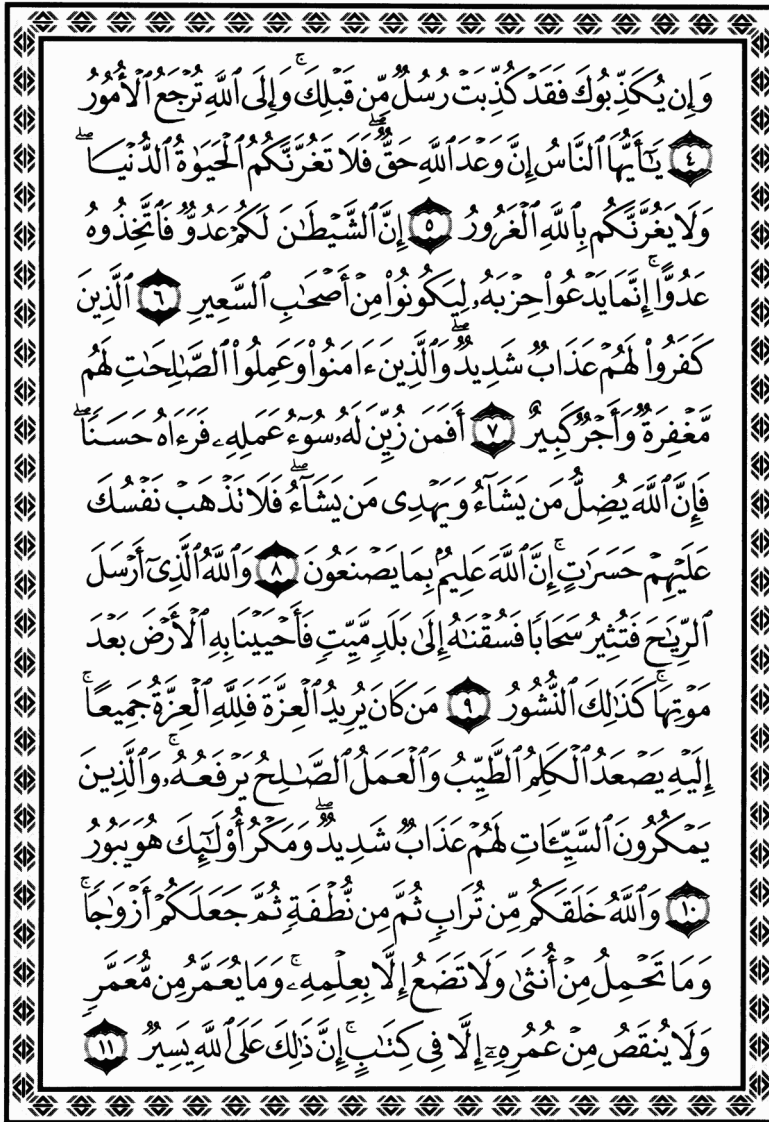 وَإِن يُكَذِّبُوكَ فَقَدْ كُذِّبَتْ رُسُلٌ مِّن قَبْلِكَ ۚ وَإِلَى ٱللَّهِ تُرْجَعُ ٱلْأُمُورُ
٤ يَٰٓأَيُّهَا ٱلنَّاسُ إِنَّ وَعْدَ ٱللَّهِ حَقٌّ ۖ فَلَا تَغُرَّنَّكُمُ ٱلْحَيَوٰةُ ٱلدُّنْيَا ۖ
وَلَا يَغُرَّنَّكُم بِٱللَّهِ ٱلْغَرُورُ ٥ إِنَّ ٱلشَّيْطَٰنَ لَكُمْ عَدُوٌّ فَٱتَّخِذُوهُ
عَدُوًّا ۚ إِنَّمَا يَدْعُوا۟ حِزْبَهُۥ لِيَكُونُوا۟ مِنْ أَصْحَٰبِ ٱلسَّعِيرِ ٦ ٱلَّذِينَ
كَفَرُوا۟ لَهُمْ عَذَابٌ شَدِيدٌ ۖ وَٱلَّذِينَ ءَامَنُوا۟ وَعَمِلُوا۟ ٱلصَّٰلِحَٰتِ لَهُم
مَّغْفِرَةٌ وَأَجْرٌ كَبِيرٌ ٧ أَفَمَن زُيِّنَ لَهُۥ سُوٓءُ عَمَلِهِۦ فَرَءَاهُ حَسَنًا ۖ
فَإِنَّ ٱللَّهَ يُضِلُّ مَن يَشَآءُ وَيَهْدِى مَن يَشَآءُ ۖ فَلَا تَذْهَبْ نَفْسُكَ
عَلَيْهِمْ حَسَرَٰتٍ ۚ إِنَّ ٱللَّهَ عَلِيمٌۢ بِمَا يَصْنَعُونَ ٨ وَٱللَّهُ ٱلَّذِىٓ أَرْسَلَ
ٱلرِّيَٰحَ فَتُثِيرُ سَحَابًا فَسُقْنَٰهُ إِلَىٰ بَلَدٍ مَّيِّتٍ فَأَحْيَيْنَا بِهِ ٱلْأَرْضَ بَعْدَ
مَوْتِهَا ۚ كَذَٰلِكَ ٱلنُّشُورُ ٩ مَن كَانَ يُرِيدُ ٱلْعِزَّةَ فَلِلَّهِ ٱلْعِزَّةُ جَمِيعًا ۚ
إِلَيْهِ يَصْعَدُ ٱلْكَلِمُ ٱلطَّيِّبُ وَٱلْعَمَلُ ٱلصَّٰلِحُ يَرْفَعُهُۥ ۚ وَٱلَّذِينَ
يَمْكُرُونَ ٱلسَّيِّـَٔاتِ لَهُمْ عَذَابٌ شَدِيدٌ ۖ وَمَكْرُ أُو۟لَٰٓئِكَ هُوَ يَبُورُ
١٠ وَٱللَّهُ خَلَقَكُم مِّن تُرَابٍ ثُمَّ مِن نُّطْفَةٍ ثُمَّ جَعَلَكُمْ أَزْوَٰجًا ۚ
وَمَا تَحْمِلُ مِنْ أُنثَىٰ وَلَا تَضَعُ إِلَّا بِعِلْمِهِۦ ۚ وَمَا يُعَمَّرُ مِن مُّعَمَّرٍ
وَلَا يُنقَصُ مِنْ عُمُرِهِۦٓ إِلَّا فِى كِتَٰبٍ ۚ إِنَّ ذَٰلِكَ عَلَى ٱللَّهِ يَسِيرٌ ١١